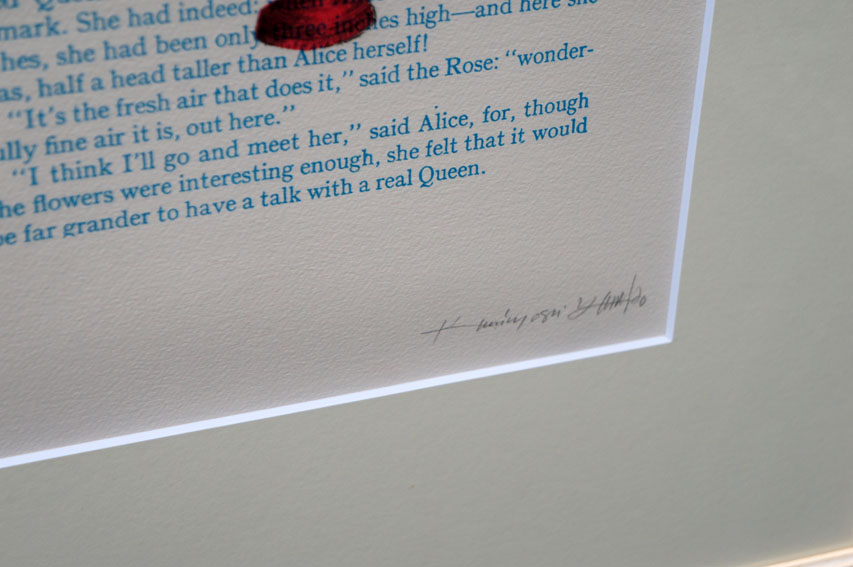 mark. She had indeed: when
hes, she had been only three inches high—and here she
as, half a head taller than Alice herself!
“It's the fresh air that does it,” said the Rose: “wonder-
ully fine air it is, out here.”
“I think I'll go and meet her,” said Alice, for, though
he flowers were interesting enough, she felt that it would
be far grander to have a talk with a real Queen.